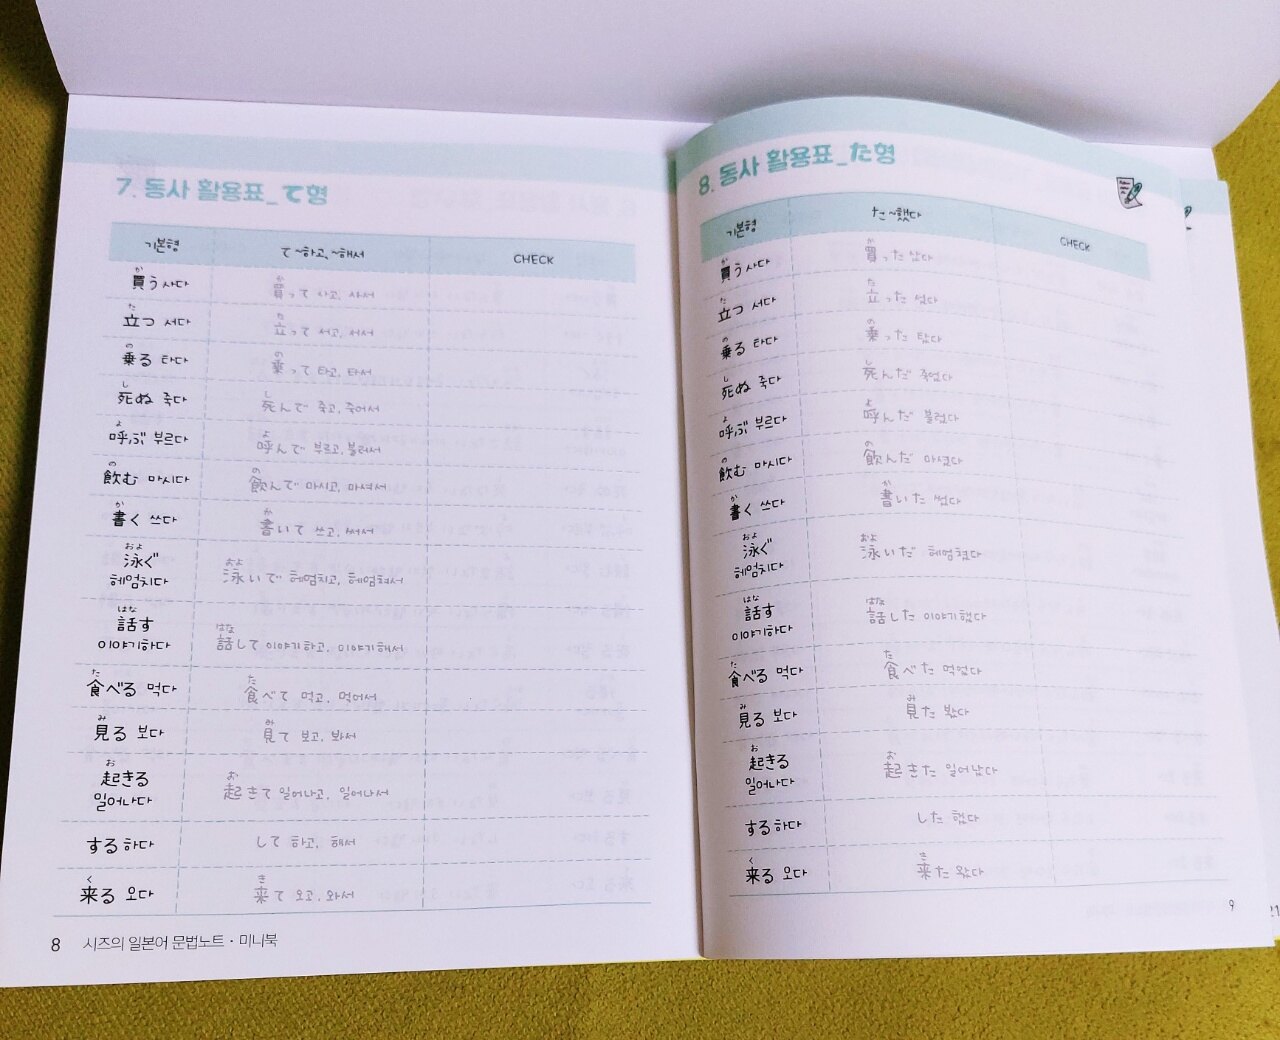 7. 동사 활용표_て형
기본형 て ~하고, ~해서 CHECK
か か
買う 사다 買って 사고, 사서
た た
立つ 서다 立って 서고, 서서
の の
乗る 타다 乗って 타고, 타서
し し
死ぬ 죽다 死んで 죽고, 죽어서
よ よ
呼ぶ 부르다 呼んで 부르고, 불러서
の の
飲む 마시다 飲んで 마시고, 마셔서
か か
書く 쓰다 書いて 쓰고, 써서
およ およ
泳ぐ 泳いで 헤엄치고, 헤엄쳐서
헤엄치다
はな はな
話す 話して 이야기하고, 이야기해서
이야기하다
た た
食べる 먹다 食べて 먹고, 먹어서
み み
見る 보다 見て 보고, 봐서
お お
起きる 起きて 일어나고, 일어나서
일어나다
する 하다 して 하고, 해서
く き
来る 오다 来て 오고, 와서
8 시즈의 일본어 문법노트 · 미니북
8. 동사 활용표_た형
기본형 た ~했다 CHECK
か か
買う 사다 買った 샀다
た た
立つ 서다 立った 섰다
の の
乗る 타다 乗った 탔다
し し
死ぬ 죽다 死んだ 죽었다
よ よ
呼ぶ 부르다 呼んだ 불렀다
の の
飲む 마시다 飲んだ 마셨다
か か
書く 쓰다 書いた 썼다
およ およ
泳ぐ 泳いだ 헤엄쳤다
헤엄치다
はな はな
話す 話した 이야기했다
이야기하다
た た
食べる 먹다 食べた 먹었다
み み
見る 보다 見た 봤다
お お
起きる 起きた 일어났다
일어나다
する 하다 した 했다
く き
来る 오다 来た 왔다
9
21